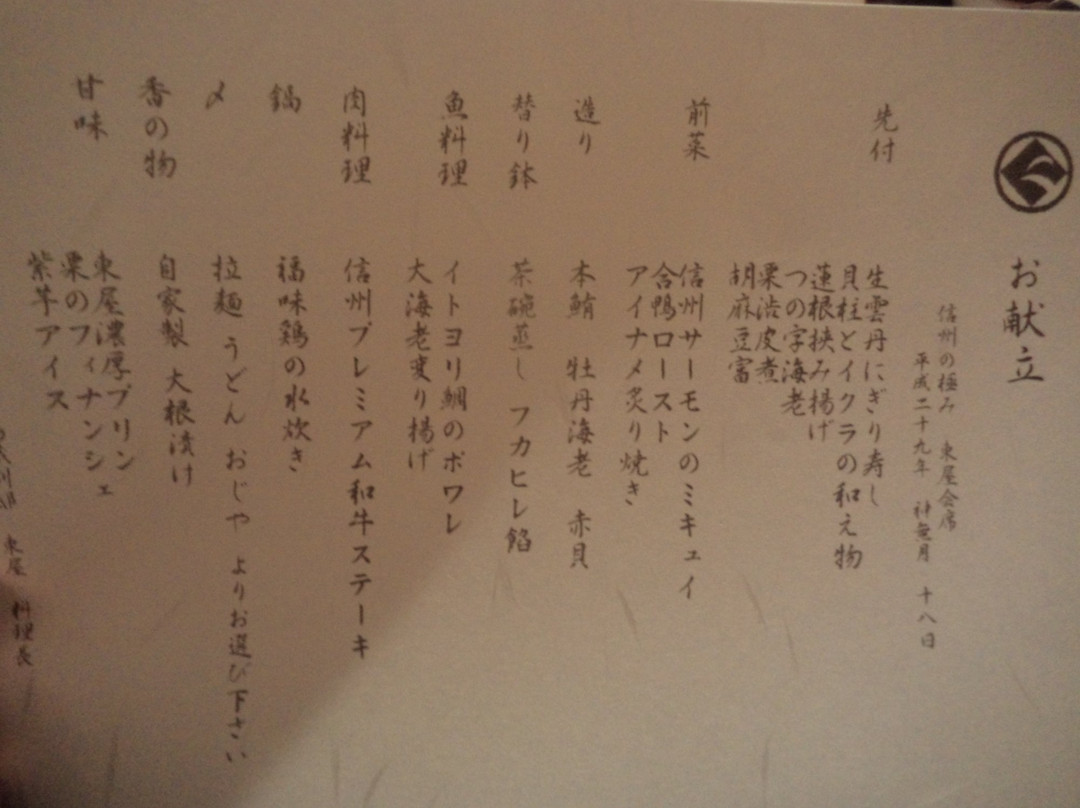 お献立
信州の極み 東屋会席
平成二十九年 神無月 十八日
先付
生雲丹にぎり寿し
貝柱とイクラの和え物
蓮根挟み揚げ
つの字海老
栗渋皮煮
胡麻豆富
前菜
信州サーモンのミキュイ
合鴨ロースト
アイナメ炙り焼き
造り
本鮪 牡丹海老 赤貝
替り鉢
茶碗蒸し フカヒレ餡
魚料理
イトヨリ鯛のポワレ
大海老変り揚げ
肉料理
信州プレミアム和牛ステーキ
鍋
福味鶏の水炊き
〆
拉麺 うどん おじや よりお選び下さい
香の物
自家製 大根漬け
甘味
東屋濃厚プリン
栗のフィナンシェ
紫芋アイス
東屋 料理長